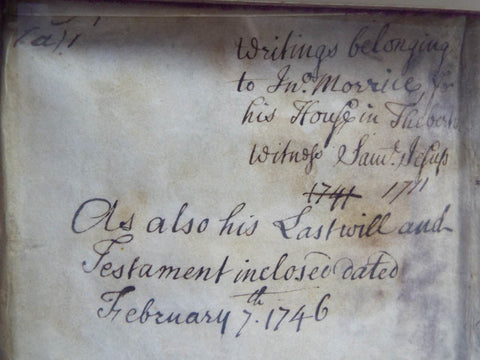 Writings belonging
to Jno. Morrice, for
his House in
Witness Saml. Jesup
1741 1711
As also his Last will and
Testament inclosed dated
February 7th. 1746